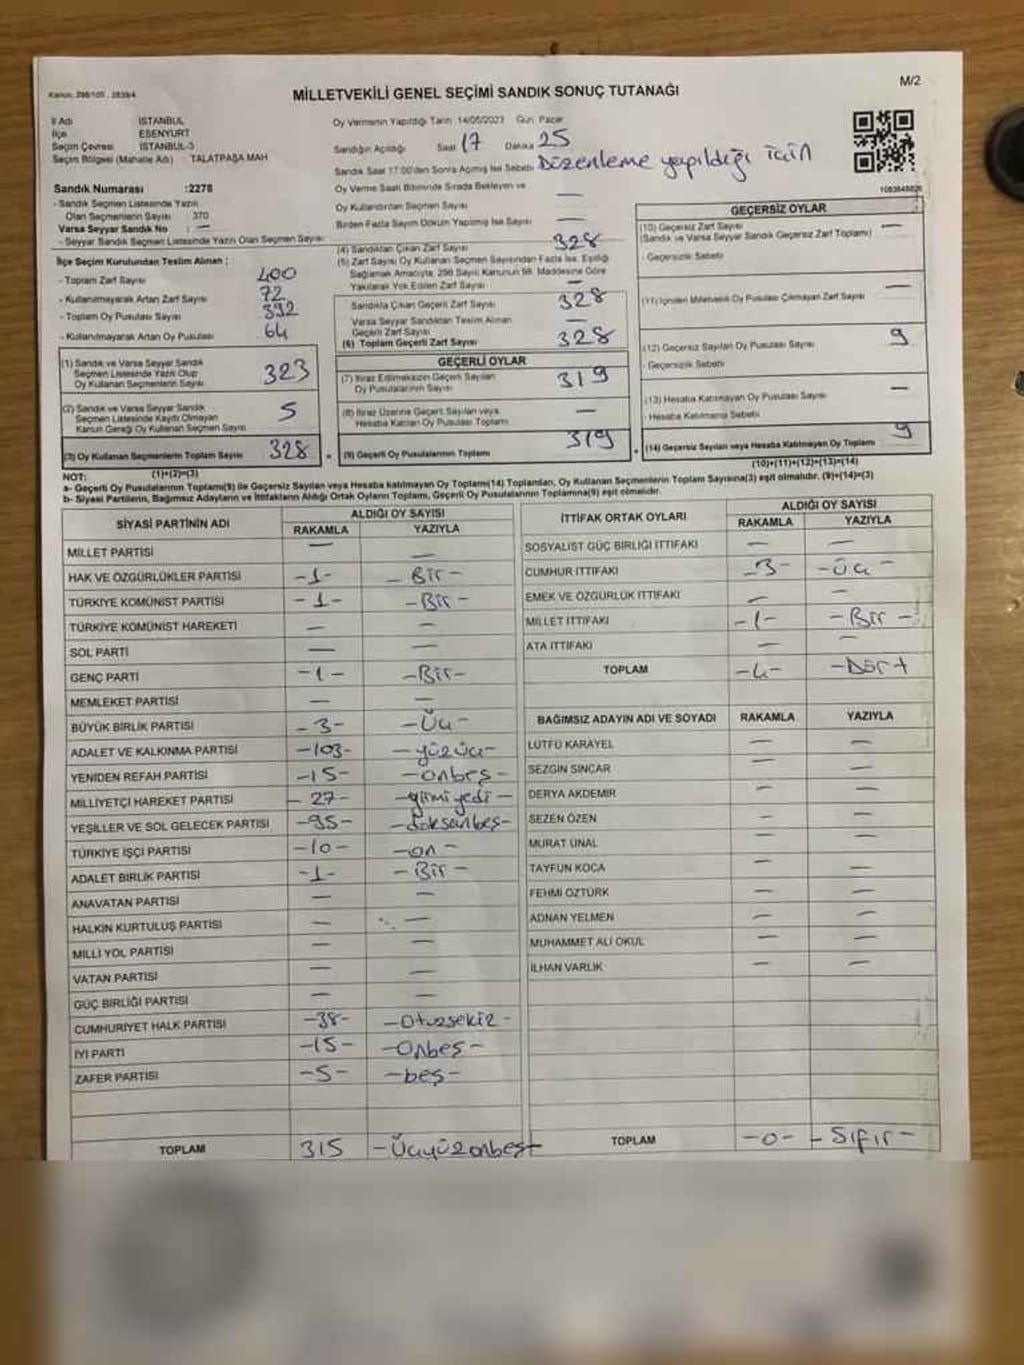 M/2
Kanun: 298/105 . 2839/4
MİLLETVEKİLİ GENEL SEÇİMİ SANDIK SONUÇ TUTANAĞI
İl Adı İSTANBUL
İlçe ESENYURT
Seçim Çevresi İSTANBUL-3
Seçim Bölgesi (Mahalle Adı) TALATPAŞA MAH
Sandık Numarası :2278
- Sandık Seçmen Listesinde Yazılı
Olan Seçmenlerin Sayısı 370
Varsa Seyyar Sandık No : —
- Seyyar Sandık Seçmen Listesinde Yazılı Olan Seçmen Sayısı
İlçe Seçim Kurulundan Teslim Alınan :
- Toplam Zarf Sayısı 400
- Kullanılmayarak Artan Zarf Sayısı 72
- Toplam Oy Pusulası Sayısı 392
- Kullanılmayarak Artan Oy Pusulası 64
(1) Sandık ve Varsa Seyyar Sandık
Seçmen Listesinde Yazılı Olup
Oy Kullanan Seçmenlerin Sayısı 323
(2) Sandık ve Varsa Seyyar Sandık
Seçmen Listesinde Kayıtlı Olmayan
Kanun Gereği Oy Kullanan Seçmen Sayısı 5
(3) Oy Kullanan Seçmenlerin Toplam Sayısı 328
(1)+(2)=(3)
Oy Vermenin Yapıldığı Tarih: 14/05/2023 Gün: Pazar
Sandığın Açıldığı Saat 17 Dakika 25
Sandık Saat 17:00'den Sonra Açılmış İse Sebebi Düzenleme yapıldığı için
Oy Verme Saati Bitiminde Sırada Bekleyen ve
Oy Kullandırılan Seçmen Sayısı —
Birden Fazla Sayım Döküm Yapılmış İse Sayısı —
(4) Sandıktan Çıkan Zarf Sayısı 328
(5) Zarf Sayısı Oy Kullanan Seçmen Sayısından Fazla İse, Eşitliği
Sağlamak Amacıyla, 298 Sayılı Kanunun 98. Maddesine Göre
Yakılarak Yok Edilen Zarf Sayısı —
Sandıkta Çıkan Geçerli Zarf Sayısı 328
Varsa Seyyar Sandıktan Teslim Alınan
Geçerli Zarf Sayısı —
(6) Toplam Geçerli Zarf Sayısı 328
GEÇERLİ OYLAR
(7) İtiraz Edilmeksizin Geçerli Sayılan
Oy Pusulalarının Sayısı 319
(8) İtiraz Üzerine Geçerli Sayılan veya
Hesaba Katılan Oy Pusulası Toplamı —
(9) Geçerli Oy Pusulalarının Toplamı 319
GEÇERSİZ OYLAR
(10) Geçersiz Zarf Sayısı —
(Sandık ve Varsa Seyyar Sandık Geçersiz Zarf Toplamı)
- Geçersizlik Sebebi
(11) İçinden Milletvekili Oy Pusulası Çıkmayan Zarf Sayısı —
(12) Geçersiz Sayılan Oy Pusulası Sayısı 9
- Geçersizlik Sebebi
(13) Hesaba Katılmayan Oy Pusulası Sayısı —
- Hesaba Katılmama Sebebi
(14) Geçersiz Sayılan veya Hesaba Katılmayan Oy Toplamı 9
(10)+(11)+(12)+(13)=(14)
NOT:
a- Geçerli Oy Pusulaları Toplamı(9) ile Geçersiz Sayılan veya Hesaba katılmayan Oy Toplamı(14) Toplamları, Oy Kullanan Seçmenlerin Toplam Sayısına(3) eşit olmalıdır. (9)+(14)=(3)
b- Siyasi Partilerin, Bağımsız Adayların ve İttifakların Aldığı Ortak Oyların Toplamı, Geçerli Oy Pusulalarının Toplamına(9) eşit olmalıdır.
SİYASİ PARTİNİN ADI ALDIĞI OY SAYISI
RAKAMLA YAZIYLA
MİLLET PARTİSİ — —
HAK VE ÖZGÜRLÜKLER PARTİSİ -1- - Bir -
TÜRKİYE KOMÜNİST PARTİSİ -1- -Bir -
TÜRKİYE KOMÜNİST HAREKETİ — —
SOL PARTİ — —
GENÇ PARTİ -1- -Bir-
MEMLEKET PARTİSİ — —
BÜYÜK BİRLİK PARTİSİ -3- -Üç-
ADALET VE KALKINMA PARTİSİ -103- -yüzüç-
YENİDEN REFAH PARTİSİ -15- -onbeş-
MİLLİYETÇİ HAREKET PARTİSİ -27- -yirmi yedi-
YEŞİLLER VE SOL GELECEK PARTİSİ -95- -doksanbeş-
TÜRKİYE İŞÇİ PARTİSİ -10- -on-
ADALET BİRLİK PARTİSİ -1- -Bir-
ANAVATAN PARTİSİ — —
HALKIN KURTULUŞ PARTİSİ — —
MİLLİ YOL PARTİSİ — —
VATAN PARTİSİ — —
GÜÇ BİRLİĞİ PARTİSİ — —
CUMHURİYET HALK PARTİSİ -38- -Otuzsekiz-
İYİ PARTİ -15- -Onbeş-
ZAFER PARTİSİ -5- -beş-
TOPLAM 315 -Üçyüzonbeş-
İTTİFAK ORTAK OYLARI ALDIĞI OY SAYISI
RAKAMLA YAZIYLA
SOSYALİST GÜÇ BİRLİĞİ İTTİFAKI — —
CUMHUR İTTİFAKI -3- -Üç-
EMEK VE ÖZGÜRLÜK İTTİFAKI — —
MİLLET İTTİFAKI -1- -Bir-
ATA İTTİFAKI — —
TOPLAM -4- -Dört
BAĞIMSIZ ADAYIN ADI VE SOYADI RAKAMLA YAZIYLA
LÜTFÜ KARAYEL — —
SEZGİN SİNCAR — —
DERYA AKDEMİR — —
SEZEN ÖZEN — —
MURAT ÜNAL — —
TAYFUN KOCA — —
FEHMİ ÖZTÜRK — —
ADNAN YELMEN — —
MUHAMMET ALİ OKUL — —
İLHAN VARLIK — —
TOPLAM -0- - Sıfır -